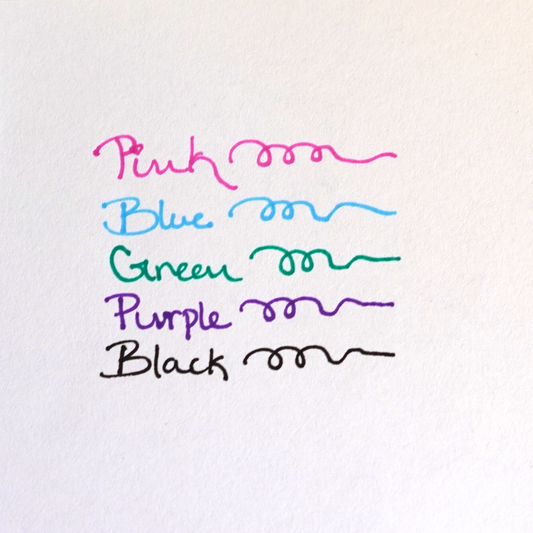 Pink
Blue
Green
Purple
Black